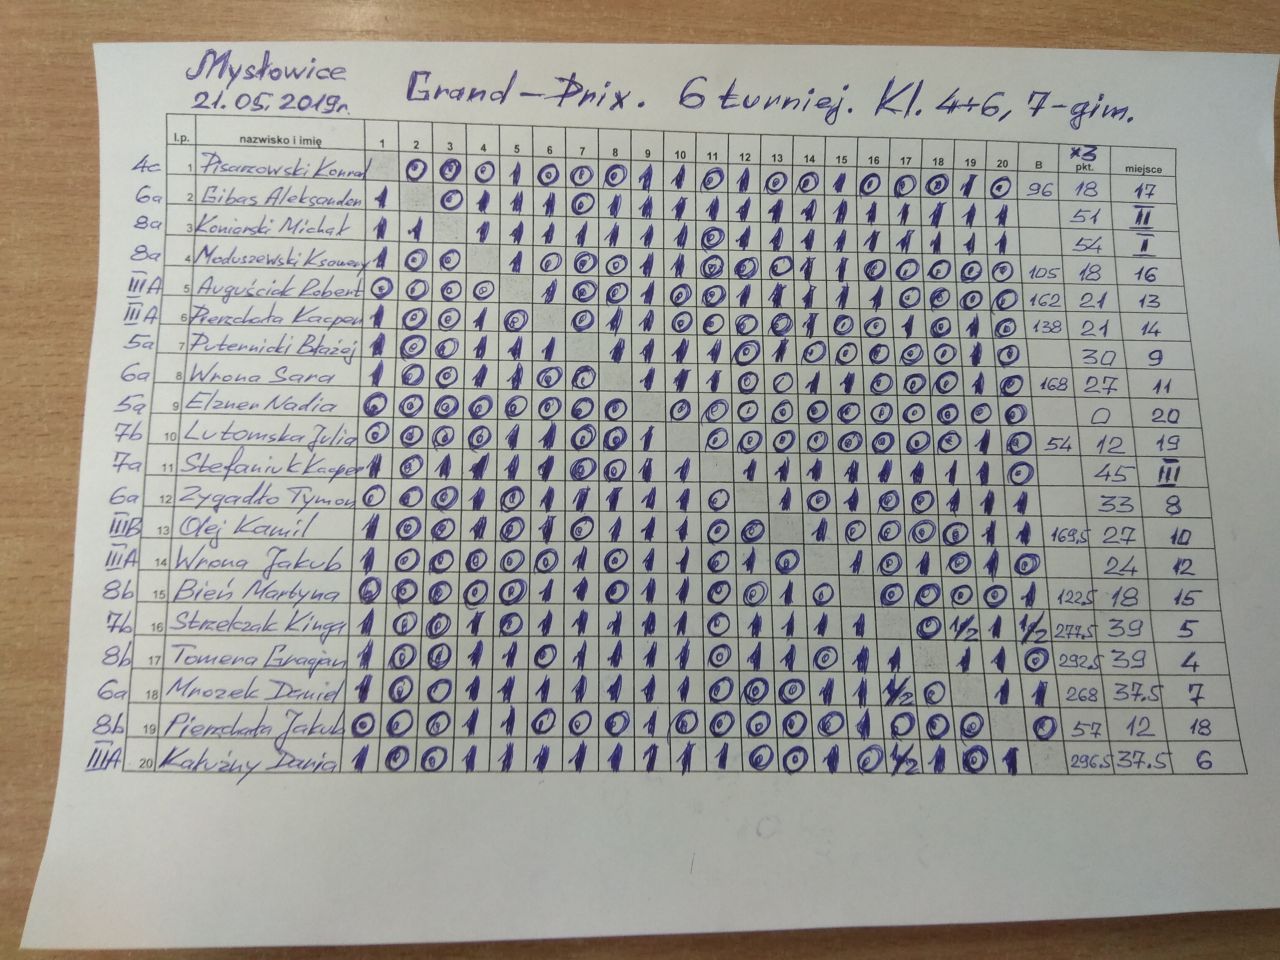 Mysłowice
21.05.2019r.
Grand-Prix. 6 turniej. Kl. 4÷6, 7-gim.
l.p. nazwisko i imię 1 2 3 4 5 6 7 8 9 10 11 12 13 14 15 16 17 18 19 20 B *3 pkt. miejsce
4c 1 Pisarzowski Konrad 0 0 0 1 0 0 0 1 1 0 1 0 0 1 0 0 0 1 0 96 18 17
6a 2 Gibas Aleksander 1 0 1 1 1 0 1 1 1 1 1 1 1 1 1 1 1 1 1 51 II
8a 3 Koniarski Michał 1 1 1 1 1 1 1 1 1 0 1 1 1 1 1 1 1 1 1 54 I
8a 4 Maduszewski Ksawery 1 0 0 1 0 0 0 1 1 0 0 0 1 1 0 0 0 0 0 105 18 16
IIIA 5 Auguściak Robert 0 0 0 0 1 0 0 1 0 0 1 1 1 1 1 0 0 0 0 162 21 13
IIIA 6 Pierzchała Kacper 1 0 0 1 0 0 1 1 0 0 0 0 1 0 0 1 0 1 0 138 21 14
5a 7 Puternicki Błażej 1 0 0 1 1 1 1 1 1 1 0 1 0 0 0 0 0 1 0 30 9
6a 8 Wrona Sara 1 0 0 1 1 0 0 1 1 1 0 0 1 1 0 0 0 1 0 168 27 11
5a 9 Elzner Nadia 0 0 0 0 0 0 0 0 0 0 0 0 0 0 0 0 0 0 0 0 20
7b 10 Lutomska Julia 0 0 0 0 1 1 0 0 1 0 0 0 0 0 0 0 0 1 0 54 12 19
7a 11 Stefaniuk Kacper 1 0 1 1 1 1 0 0 1 1 1 1 1 1 1 1 1 1 0 45 III
6a 12 Zygadło Tymon 0 0 0 1 0 1 1 1 1 1 0 1 0 1 0 0 1 1 1 33 8
IIIB 13 Olej Kamil 1 0 0 1 0 1 0 1 1 1 0 0 1 0 0 0 0 1 1 169,5 27 10
IIIA 14 Wrona Jakub 1 0 0 0 0 0 1 0 1 1 0 1 0 1 0 1 0 1 0 24 12
8b 15 Bień Martyna 0 0 0 0 0 1 1 0 1 1 0 0 1 0 0 0 0 0 1 122,5 18 15
7b 16 Strzelczak Kinga 1 0 0 1 0 1 1 1 1 1 0 1 1 1 1 0 1/2 1 1/2 277,5 39 5
8b 17 Tomera Gracjan 1 0 0 1 1 0 1 1 1 1 0 1 1 0 1 1 1 1 0 292,5 39 4
6a 18 Mrozek Daniel 1 0 0 1 1 1 1 1 1 1 0 0 0 1 1 1/2 0 1 1 268 37.5 7
8b 19 Pierzchała Jakub 0 0 0 1 1 0 0 0 1 0 0 0 0 0 1 0 0 0 0 57 12 18
IIIA 20 Kałużny Daria 1 0 0 1 1 1 1 1 1 1 1 0 0 1 0 1/2 1 0 1 296,5 37.5 6